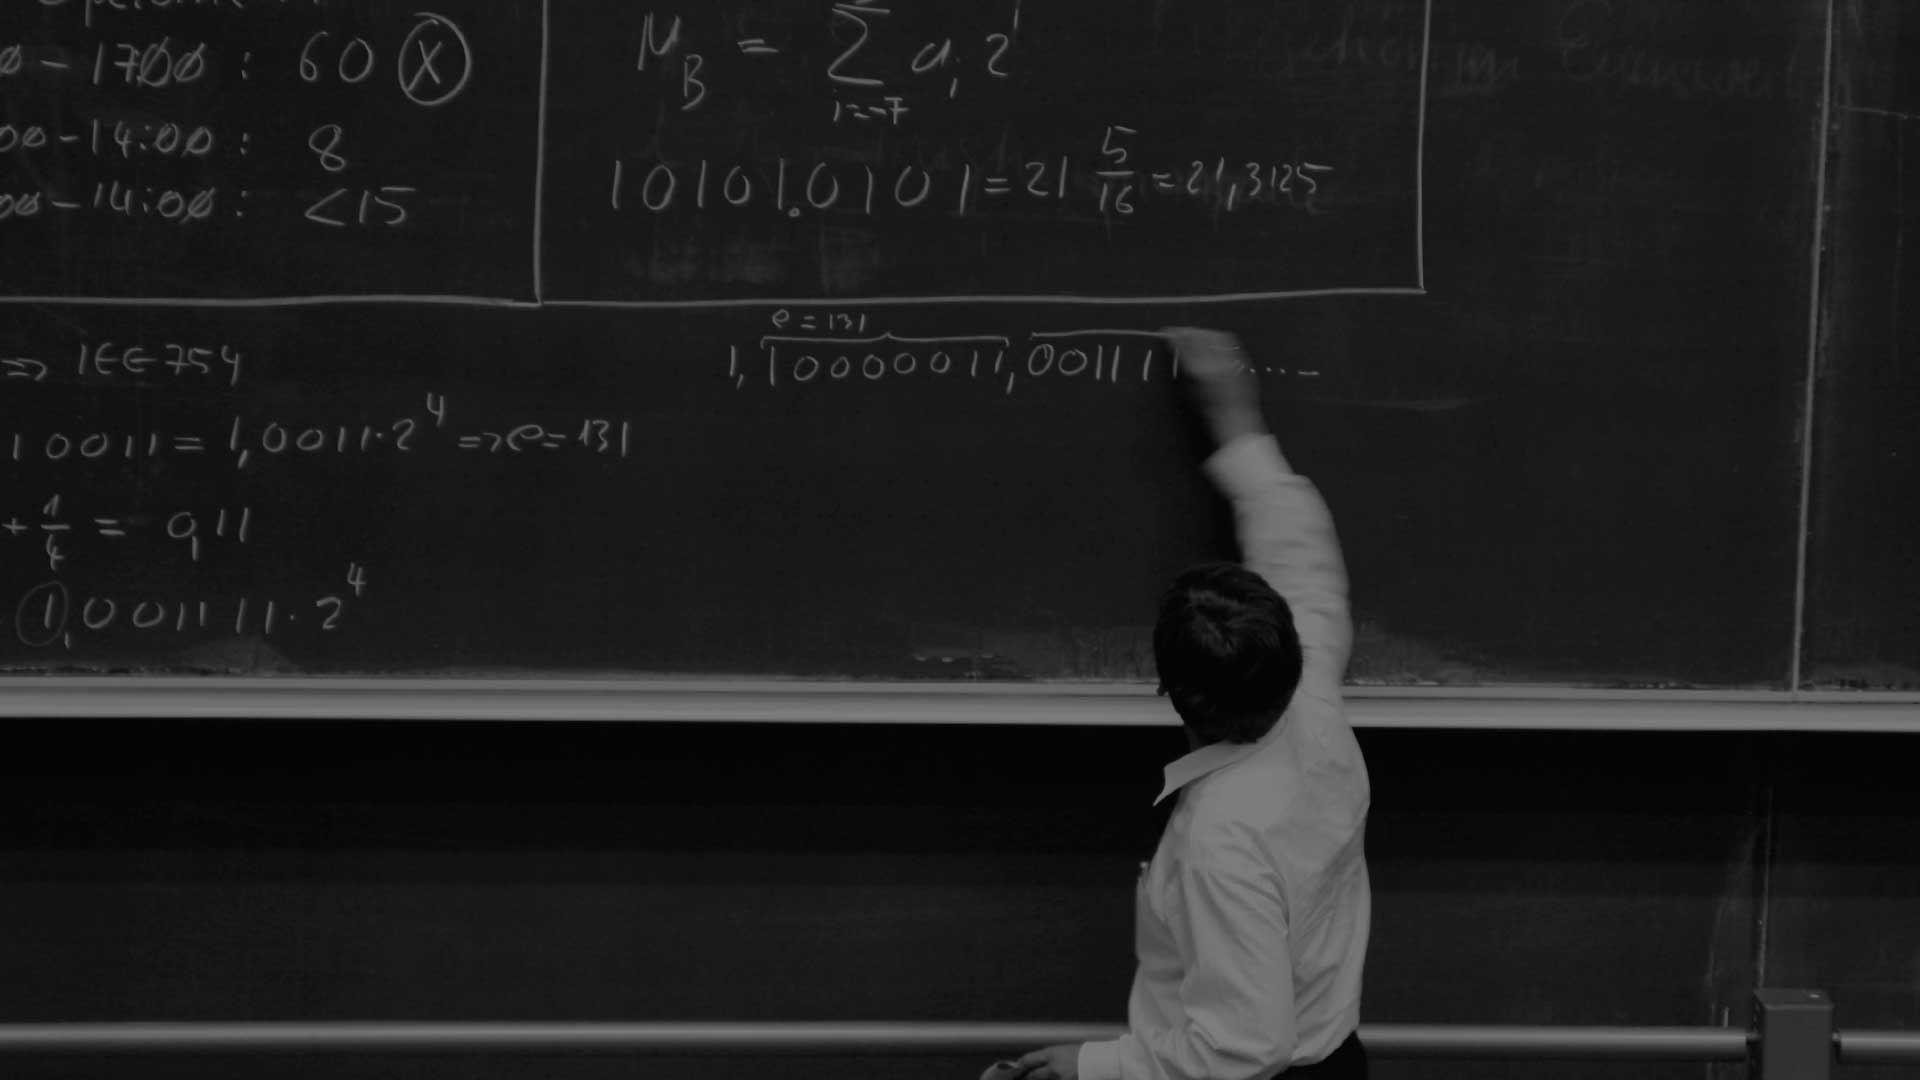 0 - 1700 : 60 X
00 - 14:00 : 8
00 - 14:00 : <15
M_B = ∑ a_i 2^i
i=-7
10101.0101 = 21 5/16 = 21,3125
=> IEE 754
10011 = 1,0011·2^4 => e=131
+ 1/4 = 0,11
1,001111·2^4
e=131
1,10000011,001111.....